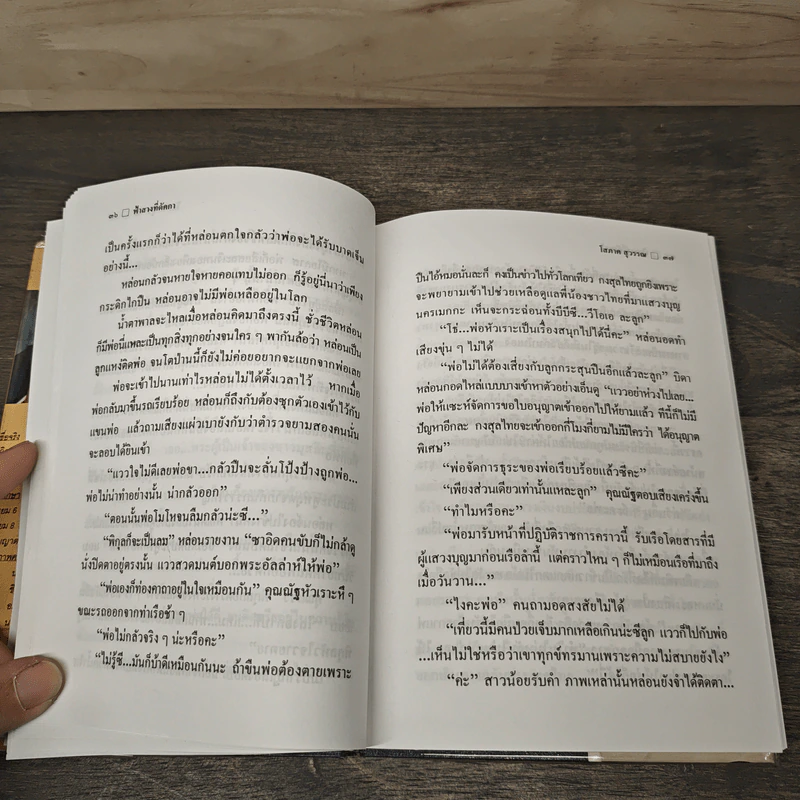 ๓๖ ฟ้าสางที่ดัคกา
เป็นครั้งแรกก็ว่าได้ที่หล่อนตกใจกลัวว่าพ่อจะได้รับบาดเจ็บ
อย่างนี้...
หล่อนกลัวจนหายใจหายคอแทบไม่ออก ก็รู้อยู่นี่นาว่าเพียง
กระดิกไกปืน หล่อนอาจไม่มีพ่อเหลืออยู่ในโลก
น้ำตาพาลจะไหลเมื่อหล่อนคิดมาถึงตรงนี้ ชั่วชีวิตหล่อน
ก็มีพ่อนี่แหละเป็นทุกสิ่งทุกอย่างจนใคร ๆ พากันล้อว่า หล่อนเป็น
ลูกแหง่ติดพ่อ จนโตป่านนี้ก็ยังไม่ค่อยอยากจะแยกจากพ่อเลย
พ่อจะเข้าไปนานเท่าไรหล่อนไม่ได้ตั้งเวลาไว้ หากเมื่อ
พ่อกลับมาขึ้นรถเรียบร้อย หล่อนก็ถึงกับต้องซุกตัวเองเข้าไว้กับ
แขนพ่อ แล้วถามเสียงแผ่วเบายังกับว่าตำรวจยามสองคนนั่น
จะลอบได้ยินเข้า
“แววใจไม่ดีเลยพ่อขา...กลัวปืนจะลั่นโป้งป้างถูกพ่อ...
พ่อไม่น่าทำอย่างนั้น น่ากลัวออก”
“ตอนนั้นพ่อโมโหจนลืมกลัวน่ะซี...”
“พิกุลก็จะเป็นลม” หล่อนรายงาน “ซาอิดคนขับก็ไม่กล้าดู
นั่งปิดตาอยู่ตรงนั้น แววสวดมนต์บอกพระอัลล่าห์ให้พ่อ”
“พ่อเองก็ท่องคาถาอยู่ในใจเหมือนกัน” คุณณัฐหัวเราะหึ ๆ
ขณะรถออกจากท่าเรือช้า ๆ
“พ่อไม่กลัวจริง ๆ น่ะหรือคะ”
“ไม่รู้ซี...มันก็บ้าดีเหมือนกันนะ ถ้าขืนพ่อต้องตายเพราะ
โสภาค สุวรรณ ๓๗
ปืนไอ้หมอนั่นละก็ คงเป็นข่าวไปทั่วโลกเทียว กงสุลไทยถูกยิงเพราะ
จะพยายามเข้าไปช่วยเหลือดูแลพี่น้องชาวไทยที่มาแสวงบุญ
นครเมกกะ เห็นจะกระฉ่อนทั้งบีบีซี...วีโอเอ ละลูก”
“โธ่...พ่อหัวเราะเป็นเรื่องสนุกไปได้นี่คะ” หล่อนอดทำ
เสียงขุ่น ๆ ไม่ได้
“พ่อไม่ได้ต้องเสี่ยงกับลูกกระสุนปืนอีกแล้วละลูก” บิดา
หล่อนกอดไหล่แบบบางเข้าหาตัวอย่างเอ็นดู “แววอย่าห่วงไปเลย...
พ่อให้แซะห์จัดการขอใบอนุญาตเข้าออกไปให้ยามแล้ว ทีนี้ก็ไม่มี
ปัญหาอีกละ กงสุลไทยจะเข้าออกกี่โมงกี่ยามไม่มีใครว่า ได้อนุญาต
พิเศษ”
“พ่อจัดการธุระของพ่อเรียบร้อยแล้วซีคะ”
“เพียงส่วนเดียวเท่านั้นแหละลูก” คุณณัฐตอบเสียงเคร่งขึ้น
“ทำไมหรือคะ”
“พ่อมารับหน้าที่ปฏิบัติราชการคราวนี้ รับเรือโดยสารที่มี
ผู้แสวงบุญมาก่อนเรือลำนี้ แต่คราวไหน ๆ ก็ไม่เหมือนเรือที่มาถึง
เมื่อวันวาน...”
“ไงคะพ่อ” คนถามอดสงสัยไม่ได้
“เที่ยวนี้มีคนป่วยเจ็บมากเหลือเกินน่ะซีลูก แววก็ไปกับพ่อ
...เห็นไม่ใช่หรือว่าเขาทุกข์ทรมานเพราะความไม่สบายยังไง”
“ค่ะ” สาวน้อยรับคำ ภาพเหล่านั้นหล่อนยังจำได้ติดตา...